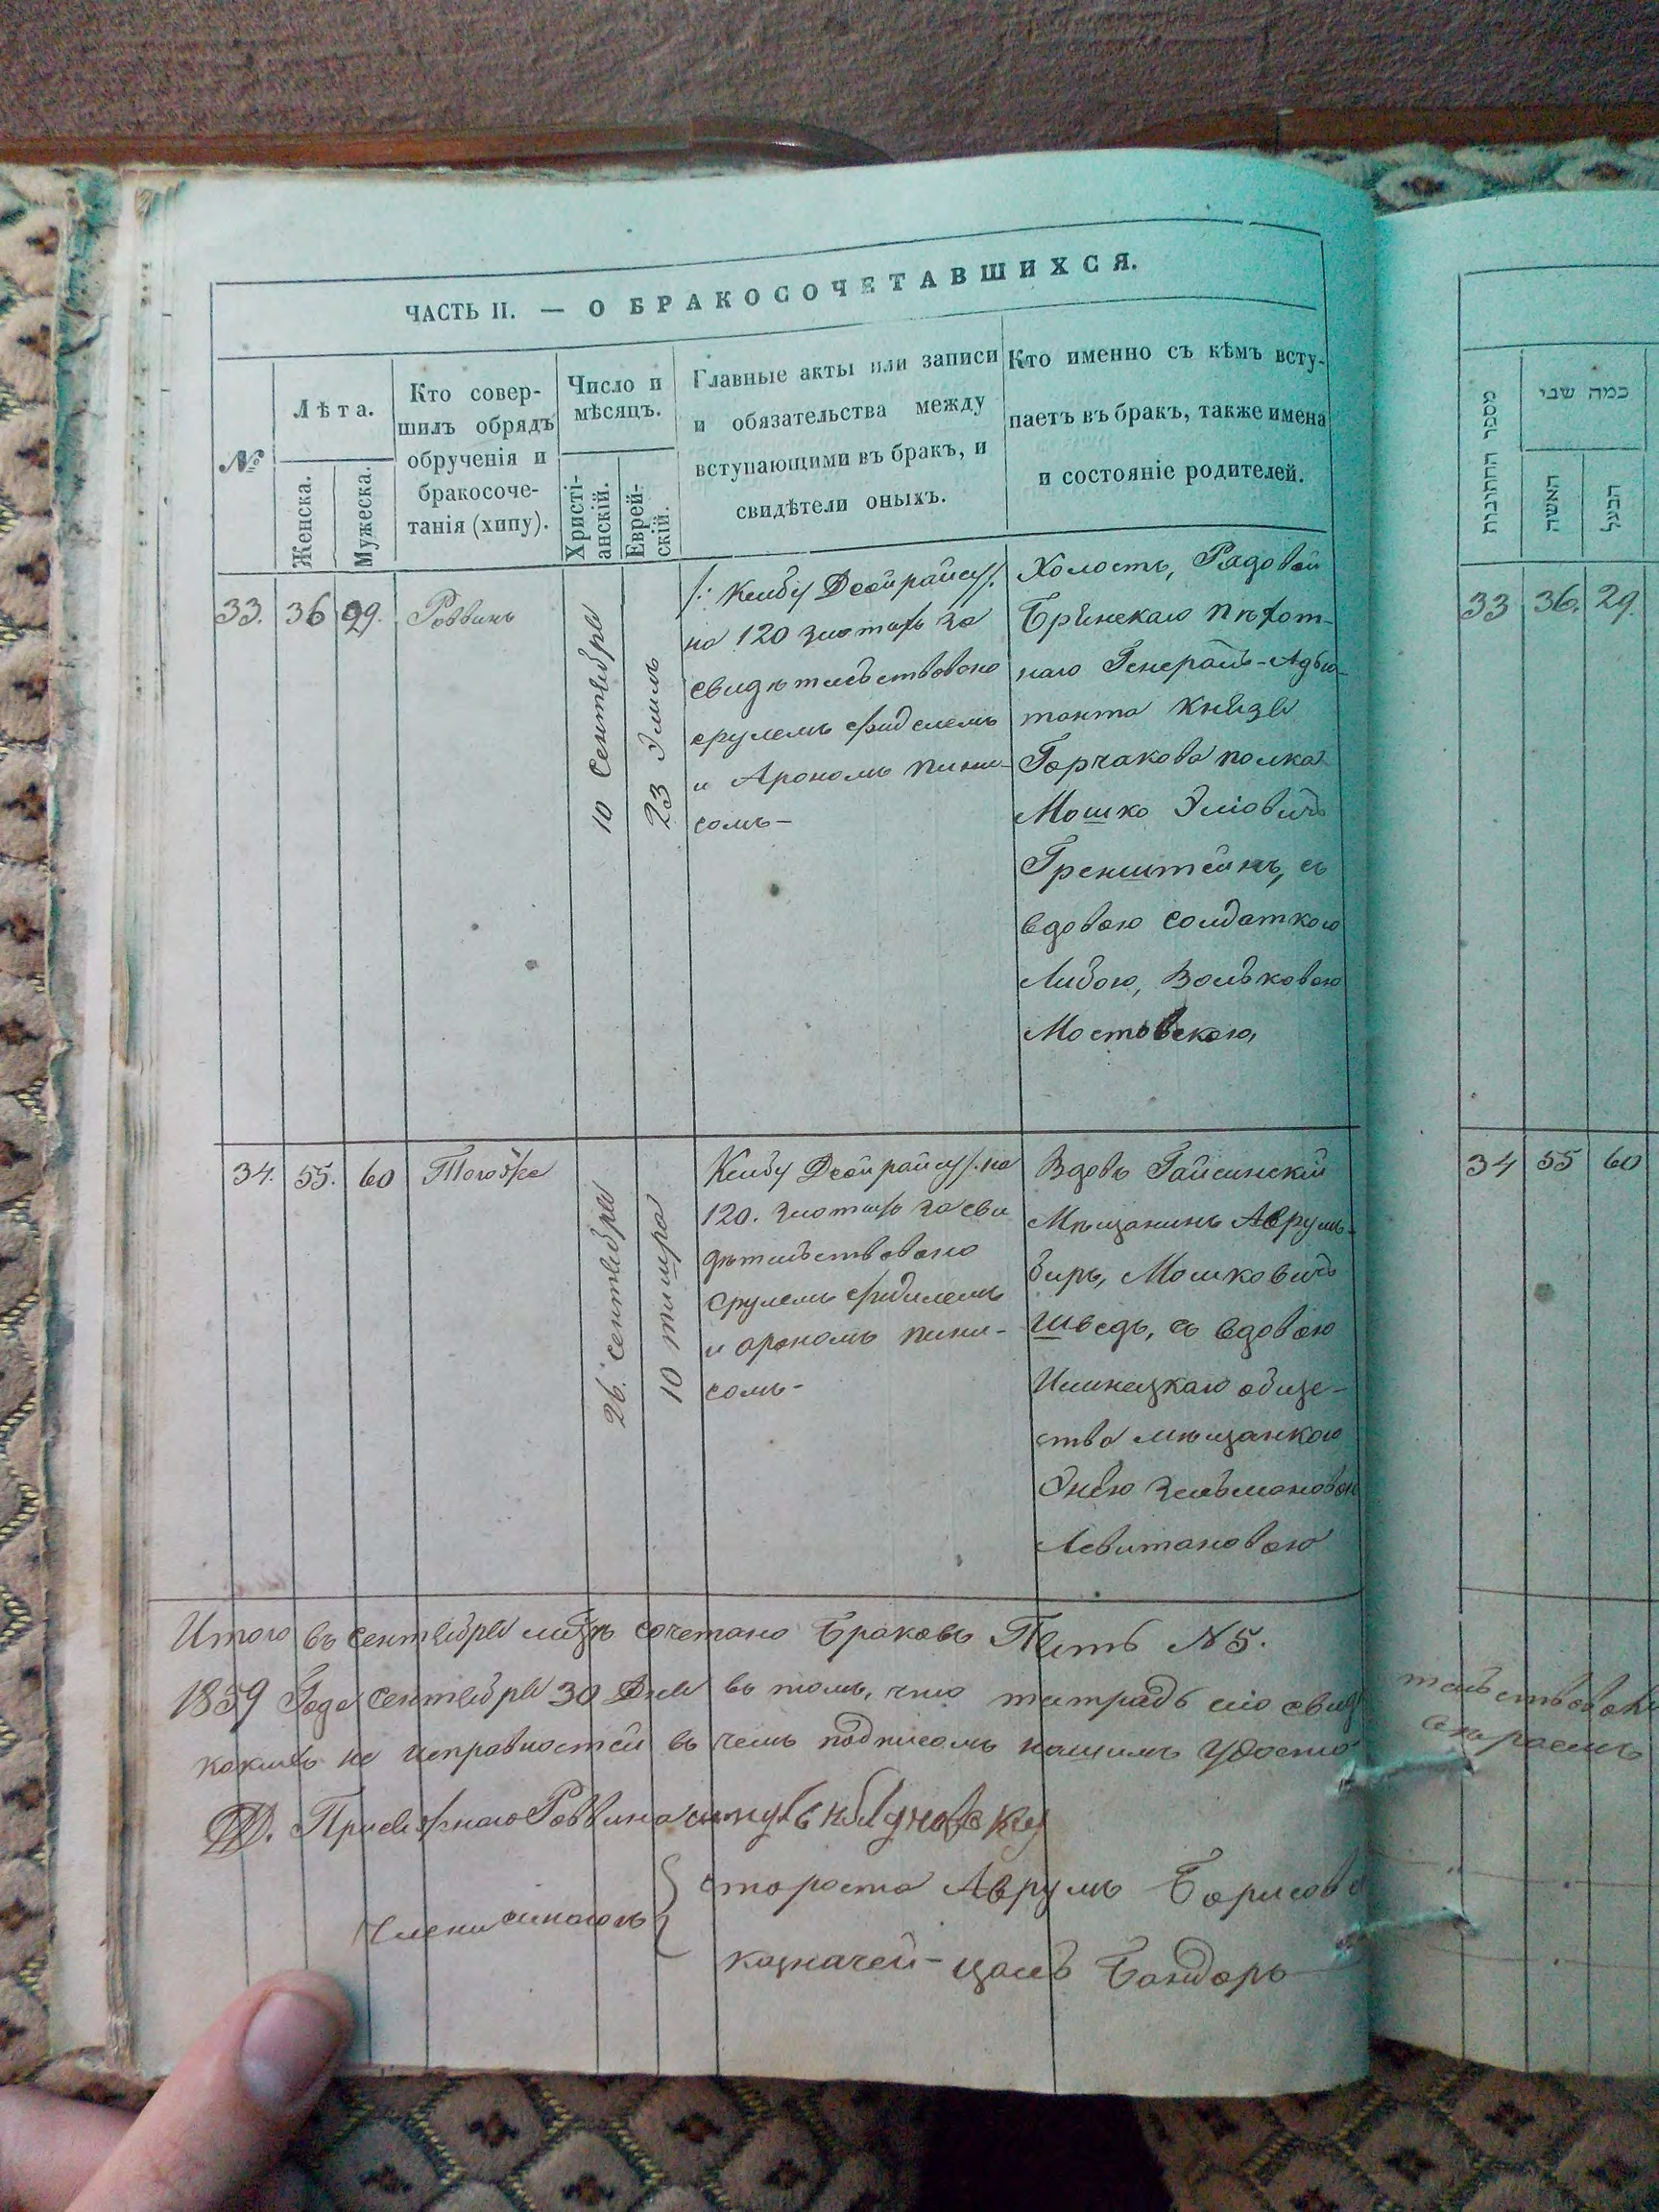 ЧАСТЬ II. — О БРАКОСОЧЕТАВШИХСЯ.
№
Лѣта.
Женска.
Мужеска.
Кто совер-
шилъ обрядъ
обрученія и
бракосоче-
танія (хипу).
Число и
мѣсяцъ.
Христі-
анскій.
Еврей-
скій.
Главные акты или записи
и обязательства между
вступающими въ бракъ, и
свидѣтели оныхъ.
Кто именно съ кѣмъ всту-
паетъ въ бракъ, также имена
и состояніе родителей.
33.
36
29.
Раввинъ
10 Сентября
23 Элиль
Ксибу Деойрайсу
на 120 злотыхъ за
свидѣтельствовано
срулемъ фиделемъ
и Арономъ пини-
сомъ-
Холостъ, Рядовой
Брянскаго Пѣхот-
наго Генералъ-Адъю-
танта Князя
Горчакова полка
Мошко Эліовичъ
Гренштейнъ, съ
вдовою солдаткою
Либою, Вольковою
Мостовскою,
34.
55.
60
Тогожъ
26. сентября
10 тишра
Ксибу Деойрайсу на
120. злотыхъ засви
дѣтельствовано
Срулемъ Фидилемъ
и арономъ пини-
сомъ-
Вдовъ Гайсинскій
Мѣщанинъ Аврумъ-
биръ, Мошковичъ
Шведъ, съ вдовою
Ильинецкаго обще-
ства мѣщанкою
Энею Зельмановою
Левитановою
Итого въ сентябрѣ мѣсяцѣ сочетано Браковъ Пять N 5.
1859 Года сентября 30 Дня въ томъ, что титрадь сію свидѣ
какихъ не исправностей въ чемъ подписомъ нашимъ удосто
Присяжнаго Раввина
Члени синагоги
староста Аврумъ Борисовъ
казначей- цаль Бондарь
מספר החתונות
כמה שני
האשה
הבעל
33
36.
29.
34
55
60
тельствована